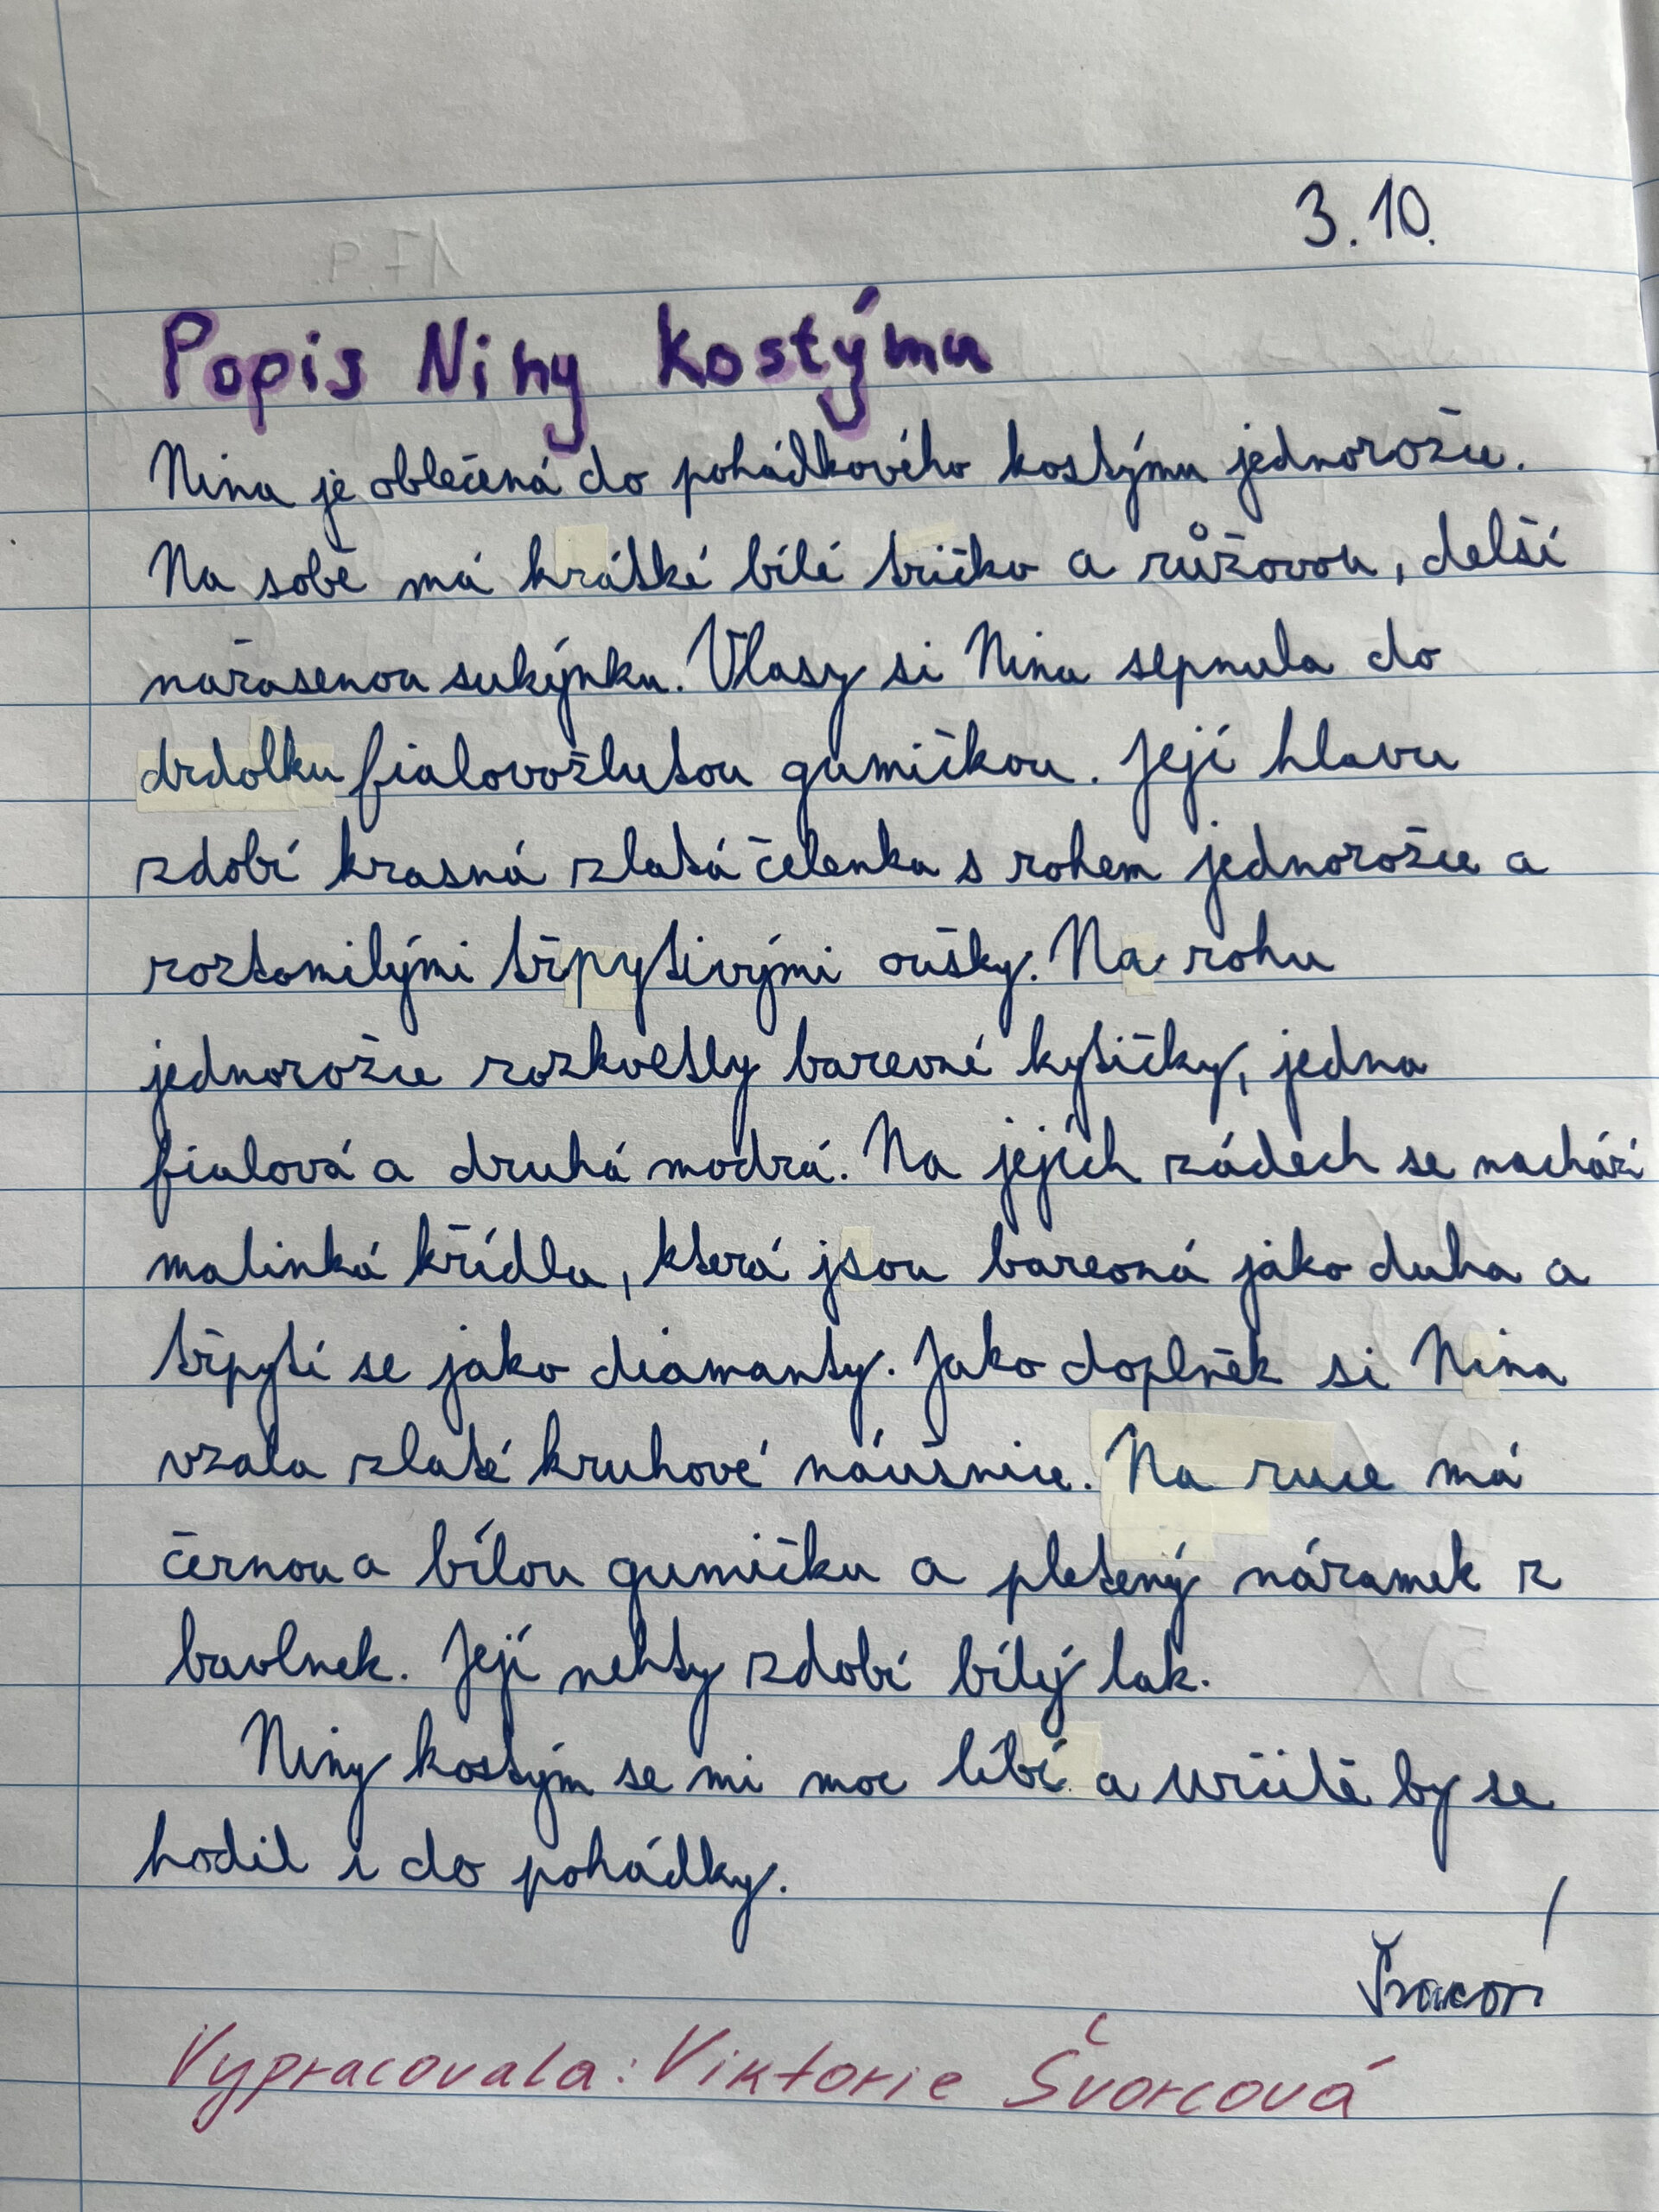 3.10.
Popis Niny kostýmu
Nina je oblečená do pohádkového kostýmu jednorožce.
Na sobě má krátké bílé tričko a růžovou, delší
nařasenou sukýnku. Vlasy si Nina sepnula do
drdolku fialovožlutou gumičkou. Její hlavu
zdobí krasná zlatá čelenka s rohem jednorožce a
roztomilými třpytivými oušky. Na rohu
jednorožce rozkvetly barevné kytičky, jedna
fialová a druhá modrá. Na jejích zádech se nachází
malinká křídla, která jsou barevná jako duha a
třpytí se jako diamanty. Jako doplněk si Nina
vzala zlaté kruhové náušnice. Na ruce má
černou a bílou gumičku a pletený náramek z
bavlnek. Její nehty zdobí bílý lak.
Niny kostým se mi moc líbí a určitě by se
hodil i do pohádky.
Vypracovala: Viktorie Švorcová